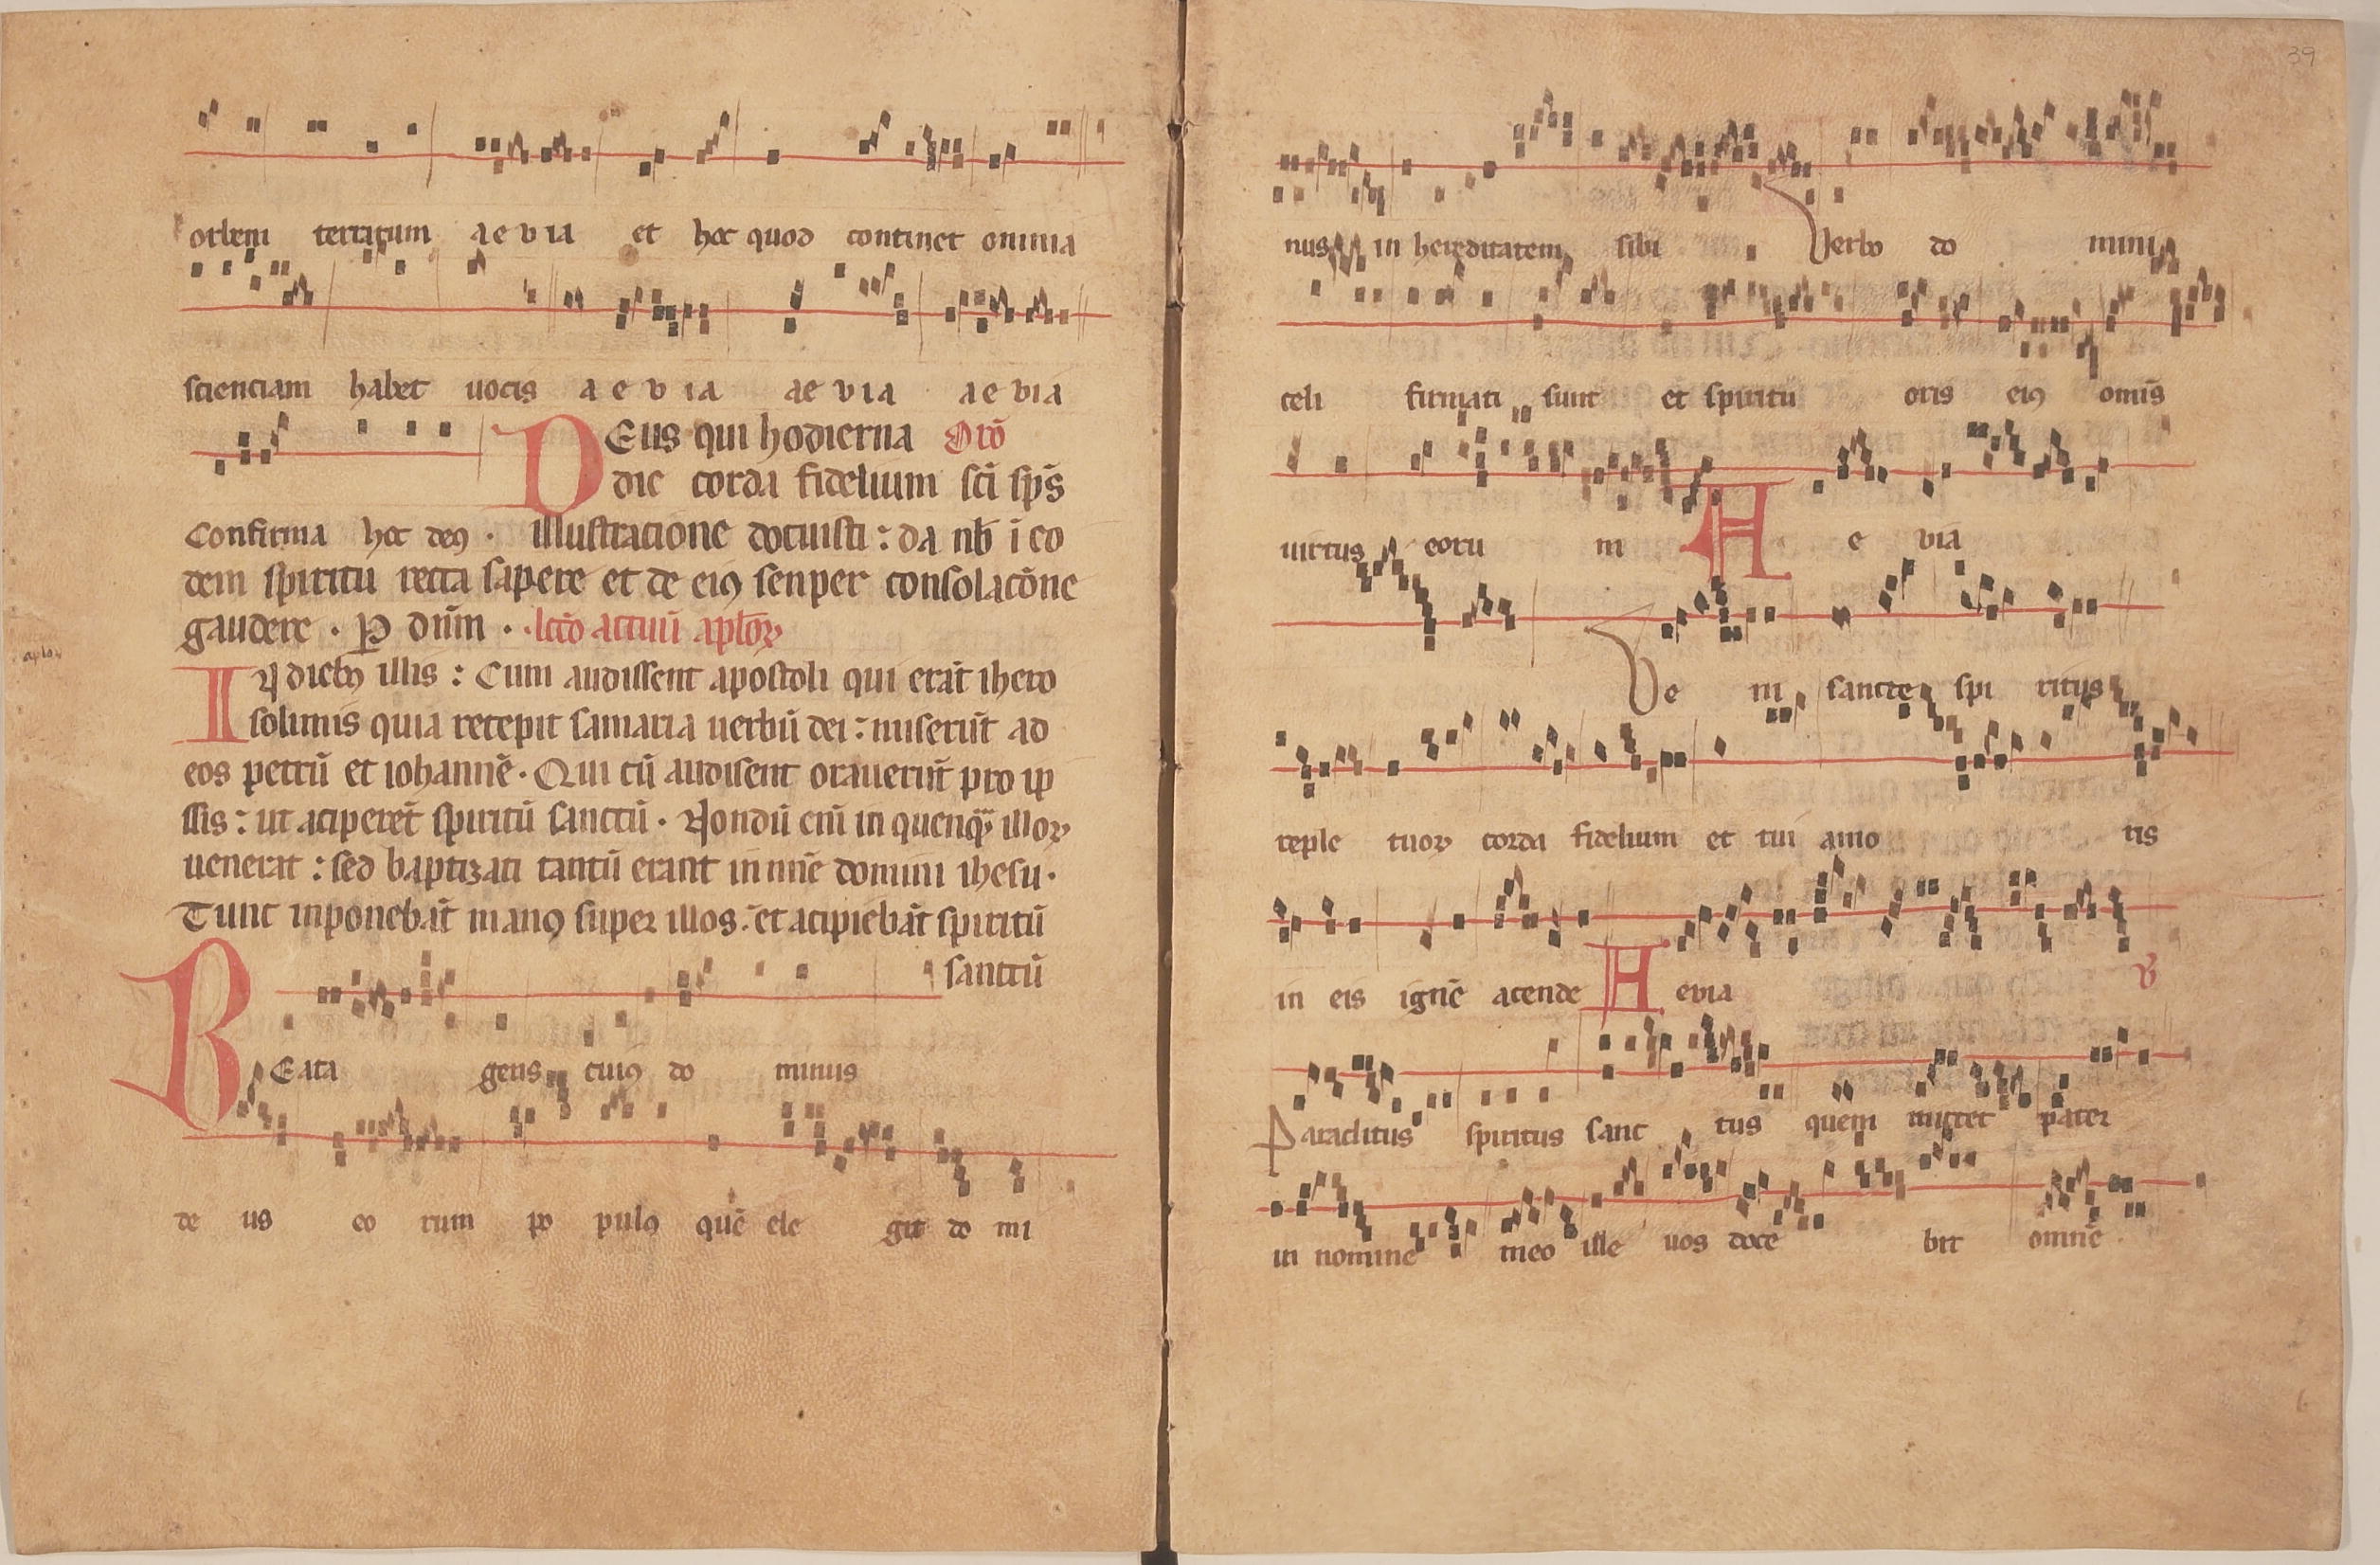 orbem terrarum aevia et hoc quod continet omnia
scienciam habet uocis aevia aevia aevia
DEus qui hodierna Orō
die corda fidelium sc̄i sp̄s
Confirma hoc deꝰ · illustratione docuisti : da nb̄ ī eo
dem spiritu recta sapere et de eiꝰ senper consolacōne
gaudere · P dn̄m · lcō actuū aplōꝝ
aploꝝ
IN diebꝫ illis : Cum audissent apostoli qui erāt ihero
solimis quia recepit samaria uerbū dei : miserūt ad
eos petrū et iohannē · Qui cū audisent orauerūt pro ip
ssis : ut aciperēt spiritū sanctū · Nondū eni̅ in quenq̄ illoꝝ
uenerat : sed baptizati tantū erant in nn̄e domini ihesu ·
Tunc inponebāt manꝰ super illos : et acipiebāt spiritū
sanctū
BEata gens cuiꝰ do minus
de us eo rum po pulꝰ quē ele git do mi
39
nus in hereditatem sibi Verbo do mini
celi firmati sunt et spiritu oris eiꝰ omīs
uirtus eoru m A e via
Ve ni sancte spi ritus
reple tuoꝝ corda fidelium et tui amo ris
in eis ignē acende A evia ℣
Paraclitus spiritus sanc tus quem mittet pater
in nomine meo ille uos doce bit omnē